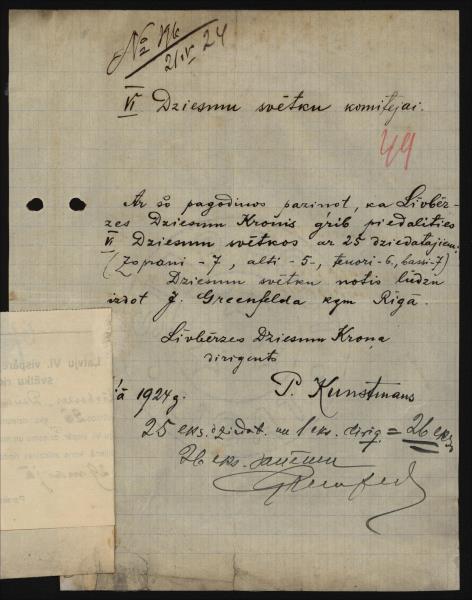 № 
21/V 24
VI Dziesmu svētku komitejai.
49
Ar šo pagodinos paziņot, ka Līvbēr-
zes Dziesmu Kronis grib piedalīties
VI Dziesmu svētkos ar 25 dziedatājiem
(Soprani - 7, alti - 5-, tenori - 6, bassi - 7)
Dziesmu svētku notis lūdzu
izdot J. Greenfelda kgm Rīgā.
Līvbērzes Dziesmu Kroņa
dirigents
1924 g.
P. Kunstmans
25 eks. dziedat. un 1 eks. dirig. = 26 eks.
26 eks. saņēmu
Latvju VI. vispāre
svētku